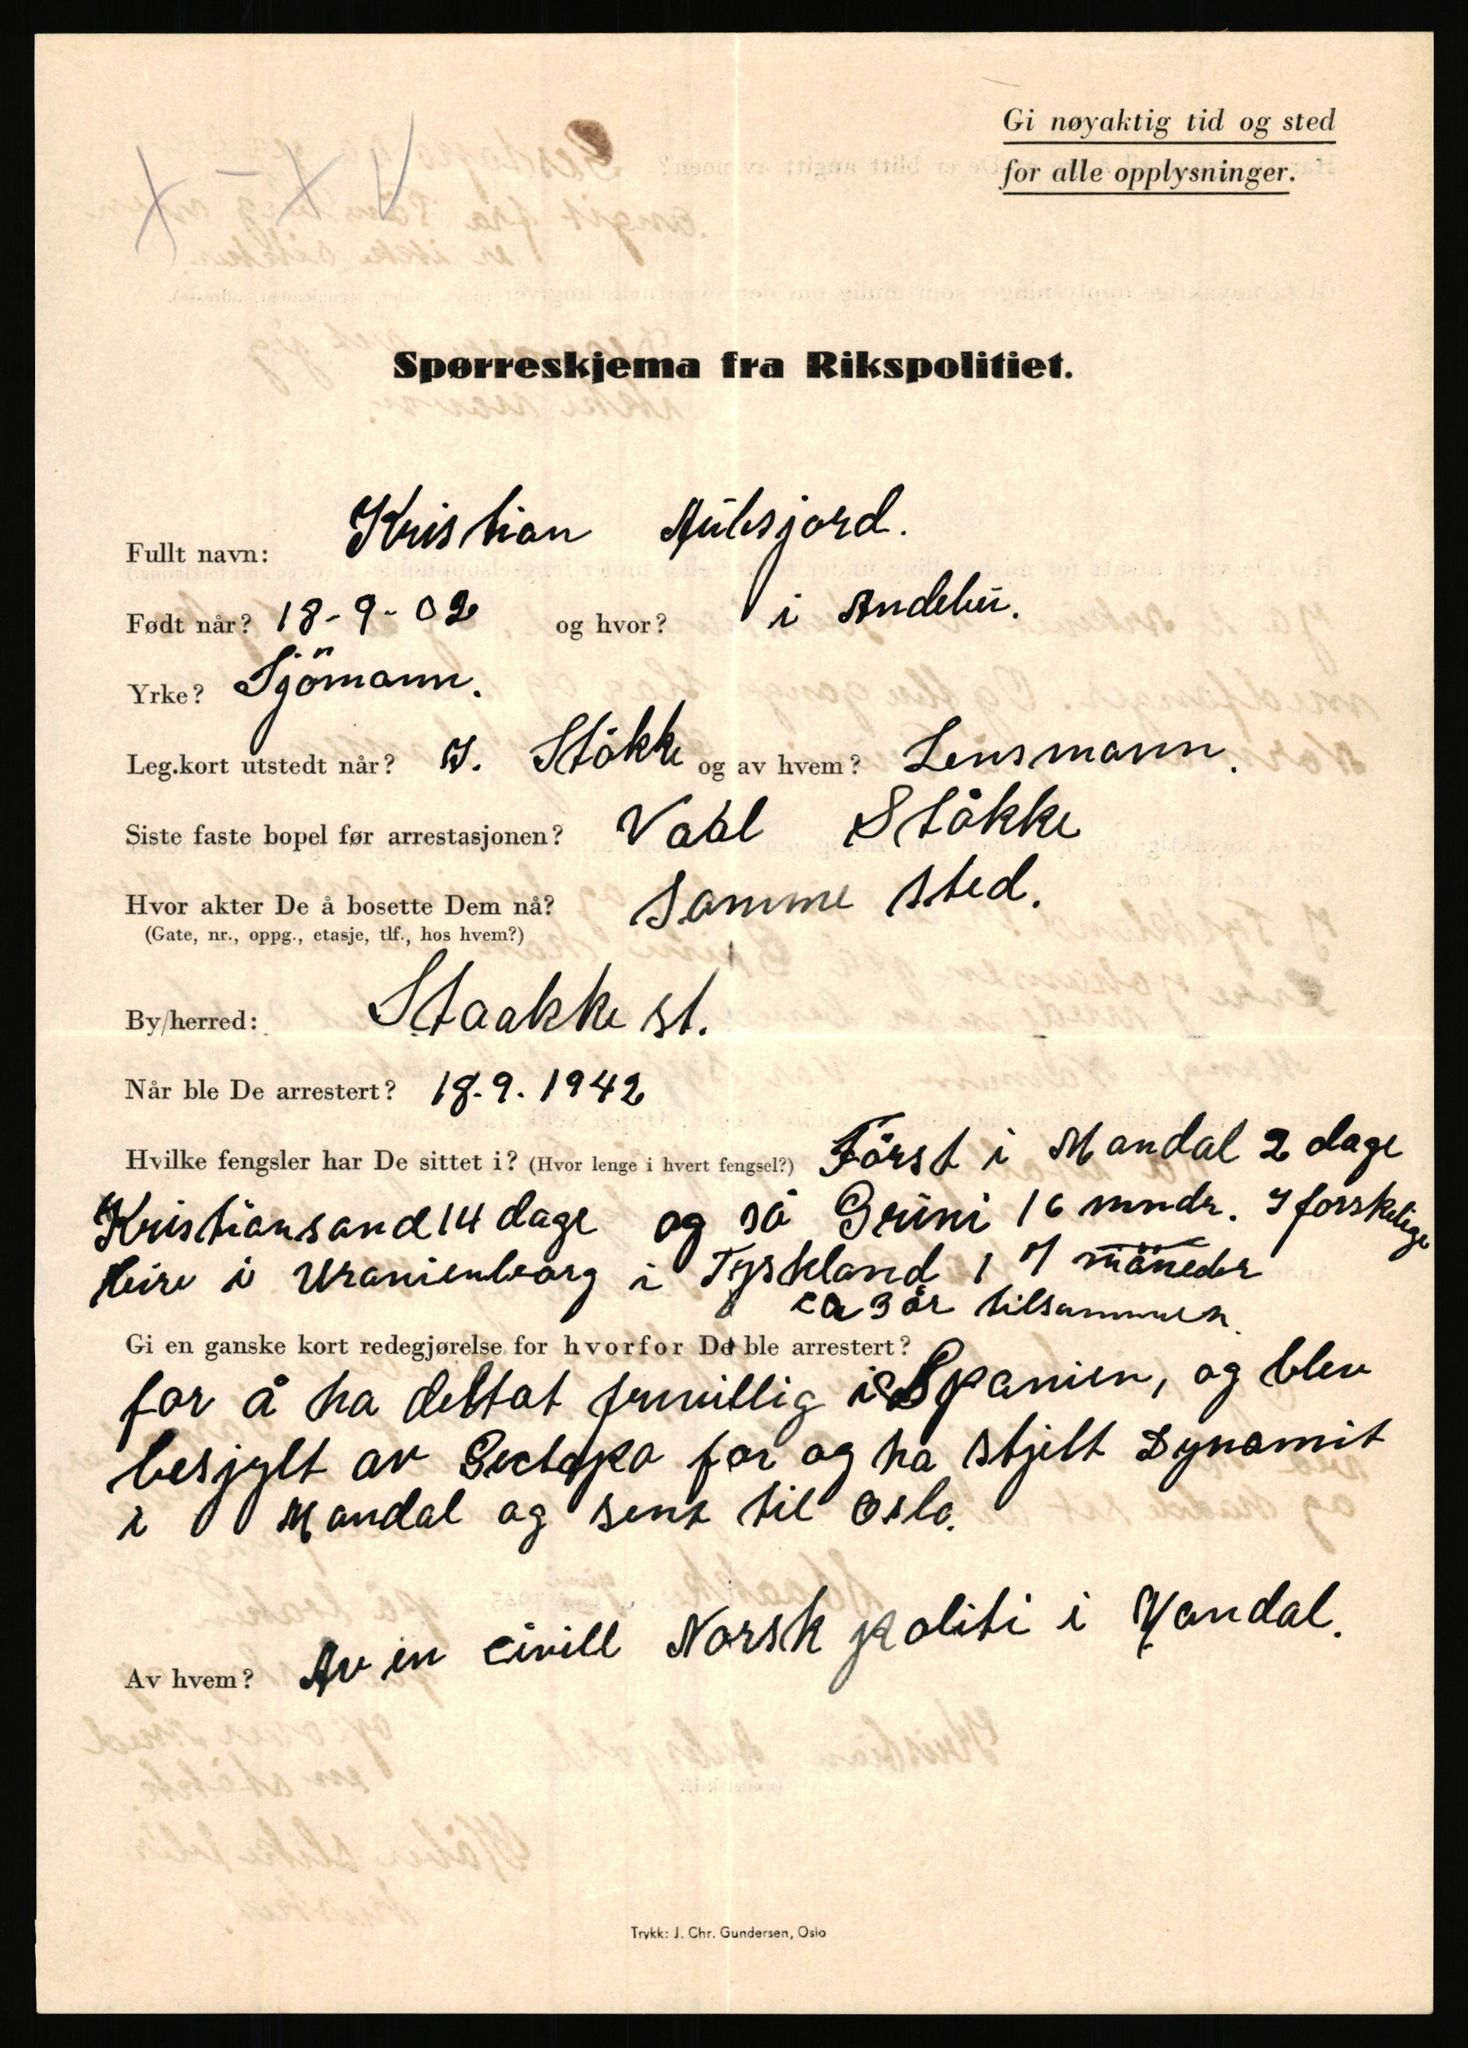 Gi nøyaktig tid og sted
for alle opplysninger.
Spørreskjema fra Rikspolitiet.
Fullt navn: Kristian Aulesjord.
Født når? 18-9-02 og hvor? i Andebu.
Yrke? Sjömann.
Leg.kort utstedt når? I. Ståkke og av hvem? Lensmann.
Siste faste bopel før arrestasjonen? Vaal Ståkke
Hvor akter De å bosette Dem nå? Samme sted.
(Gate, nr., oppg., etasje, tlf., hos hvem?)
By/herred: Staakke st.
Når ble De arrestert? 18.9.1942
Hvilke fengsler har De sittet i? (Hvor lenge i hvert fengsel?) Först i Mandal 2 dage
Kristiansand 14 dage og så Grini 16 mndr. I forskelige
leire i Uranienborg i Tyskland 17 måneder
ca 3 år tilsammen.
Gi en ganske kort redegjørelse for hvorfor De ble arrestert?
for å ha deltat frivillig i Spanien, og blev
besjylt av Gestapo for og ha stjelt Dynamit
i Mandal og sent til Oslo.
Av hvem? Av en civill Norsk politi i Mandal.
Trykk: J. Chr. Gundersen, Oslo